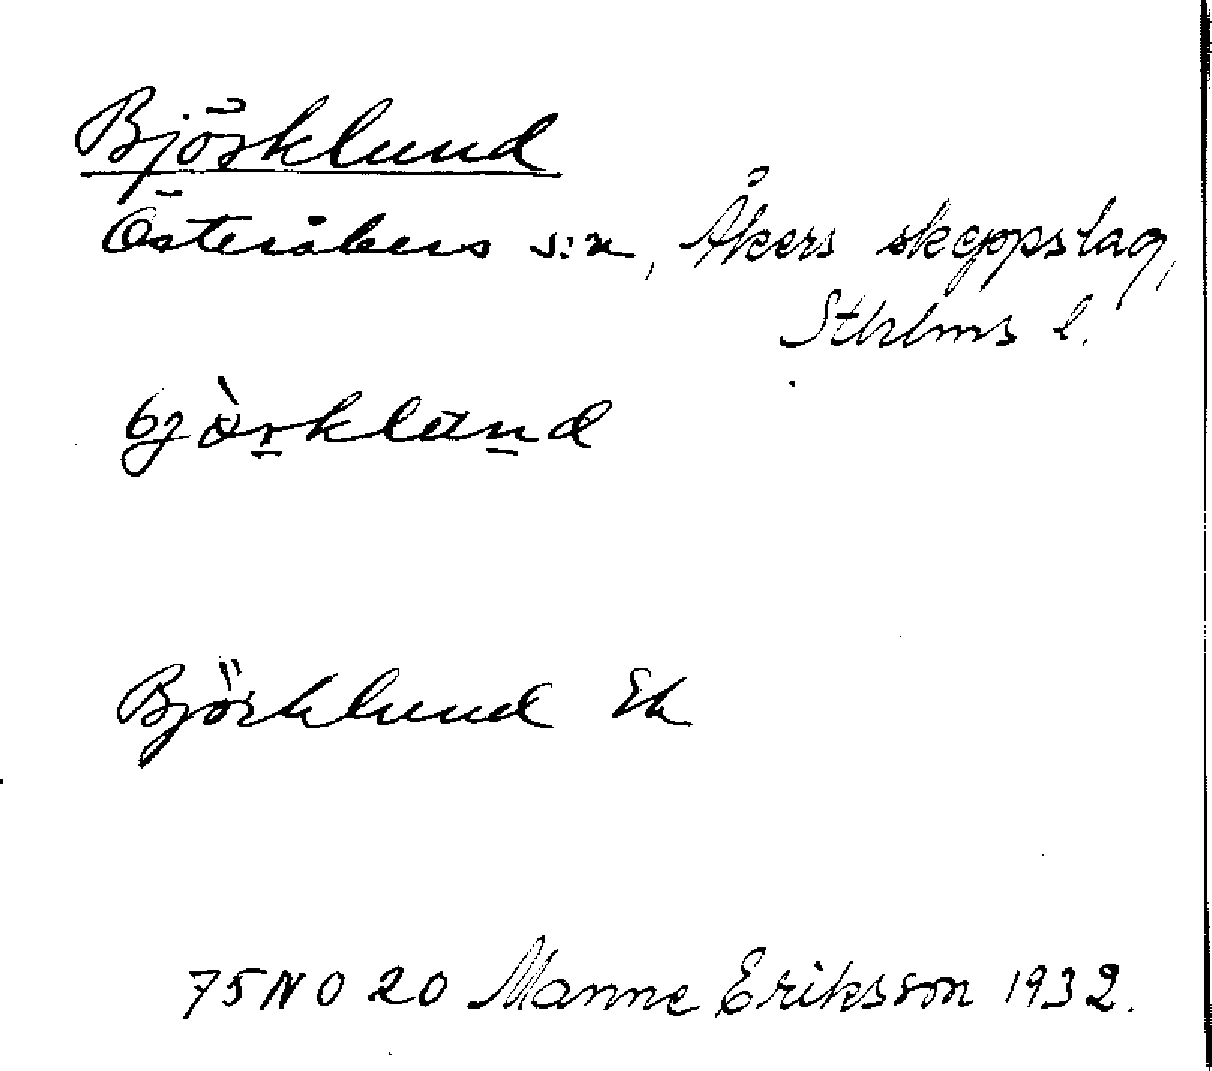 Björklund
Österåkers s:n, Åkers skeppslag,
Sthlms l.
Björklund Ek
75 NO 20 Manne Eriksson 1932.